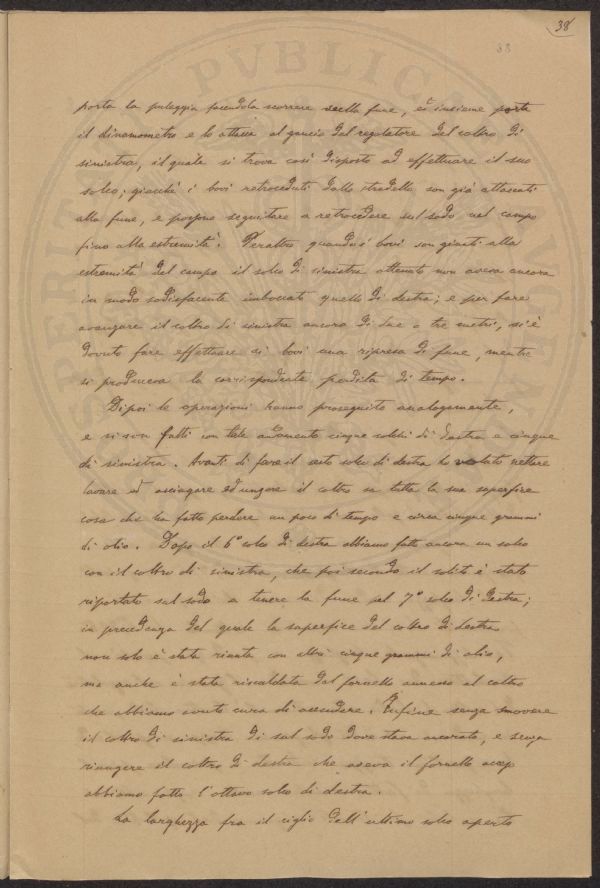 38
38
porta la puleggia facendola scorrere nella fune, ed insieme porta
il dinamometro e lo attacca al gancio del regolatore del coltro di
sinistra, il quale si trova così disposto ad effettuare il suo
solco; giacchè i bovi retroceduti dallo stradello son già attaccati
alla fune, e possono seguitare a retrocedere sul sodo nel campo
fino alla estremità. Peraltro quando i bovi son giunti alla
estremità del campo il solco di sinistra ottenuto non aveva ancora
in modo sodisfacente imboccato quello di destra; e per fare
avanzare il coltro di sinistra ancora di due o tre metri, si è
dovuto fare effettuare ai bovi una ripresa di fune, mentre
si produceva la corrispondente perdita di tempo.
Dipoi le operazioni hanno proseguito analogamente,
e si son fatti con tale andamento cinque solchi di destra e cinque
di sinistra. Avanti di fare il sesto solco di destra ho voluto nettare
lavare ed asciugare ed ungere il coltro su tutta la sua superfice
cosa che ha fatto perdere un poco di tempo e circa cinque grammi
di olio. Dopo il 6° solco di destra abbiamo fatto ancora un solco
con il coltro di sinistra, che poi secondo il solito è stato
riportato sul sodo a tenere la fune pel 7° solco di destra;
in precedenza del quale la superfice del coltro di destra
non solo è stata riunta con altri cinque grammi di olio,
ma anche è stata riscaldata dal fornello annesso al coltro
che abbiamo avuto cura di accendere. Infine senza smovere
il coltro di sinistra di sul sodo dove stava ancorato, e senza
riungere il coltro di destra che aveva il fornello acceso
abbiamo fatto l'ottavo solco di destra.
La larghezza fra il ciglio dell'ultimo solco aperto